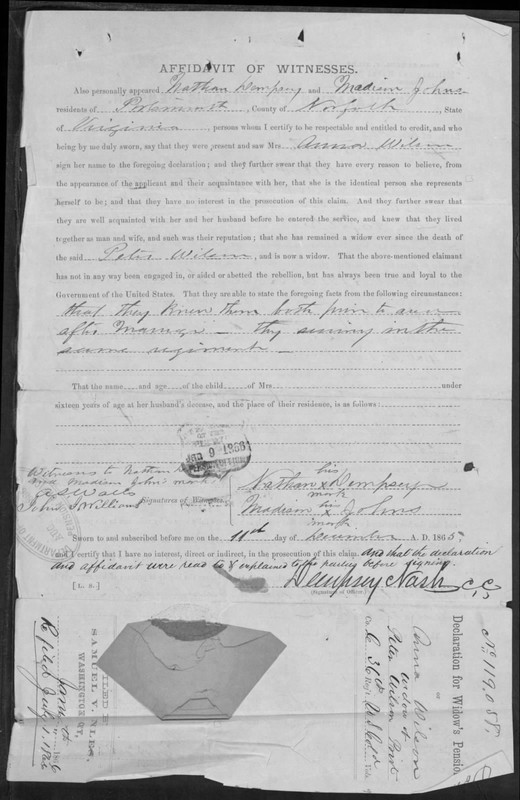 AFFIDAVIT OF WITNESSES.
Also personally appeared Nathan Dempsey and Madison Johns
residents of , County of Norfolk , State
of Virginia , persons whom I certify to be respectable and entitled to credit, and who
being by me duly sworn, say that they were present and saw Mrs. Anna Wilson
sign her name to the foregoing declaration; and they further swear that they have every reason to believe, from
the appearance of the applicant and their acquaintance with her, that she is the identical person she represents
herself to be; and that they have no interest in the prosecution of this claim. And they further swear that
they are well acquainted with her and her husband before he entered the service, and knew that they lived
together as man and wife, and such was their reputation; that she has remained a widow ever since the death of
the said Peter Wilson , and is now a widow. That the above-mentioned claimant
has not in any way been engaged in, or aided or abetted the rebellion, but has always been true and loyal to the
Government of the United States. That they are able to state the foregoing facts from the following circumstances:
that they knew them both prior to and
after Marriage - they serving in the
same regiment -
That the name and age of the child of Mrs. under
sixteen years of age at her husband's decease, and the place of their residence, is as follows:
Witnesses to Nathan D
and Madison John mark
A S Watts
John S Williams
Signatures of Witnesses
his
Nathan x Dempsey
mark
his
Madison x Johns
mark
Sworn to and subscribed before me on the 11th day of December A. D. 1865
and I certify that I have no interest, direct or indirect, in the prosecution of this claim and that the declaration
and affidavit were read to & explained to the parties before signing.
[L. S.] Dempsey Nash C,C,
(Signature of Officer.)
No 119.058.
Declaration for Widow's Pension
OF
Anna Wilson
widow of
Peter Wilson Priv
Co. 36 Reg't U S Col Vols.
FILED BY
SAMUEL V. NILES,
WASHINGTON CITY,
1866
Re filed July 1. 1866